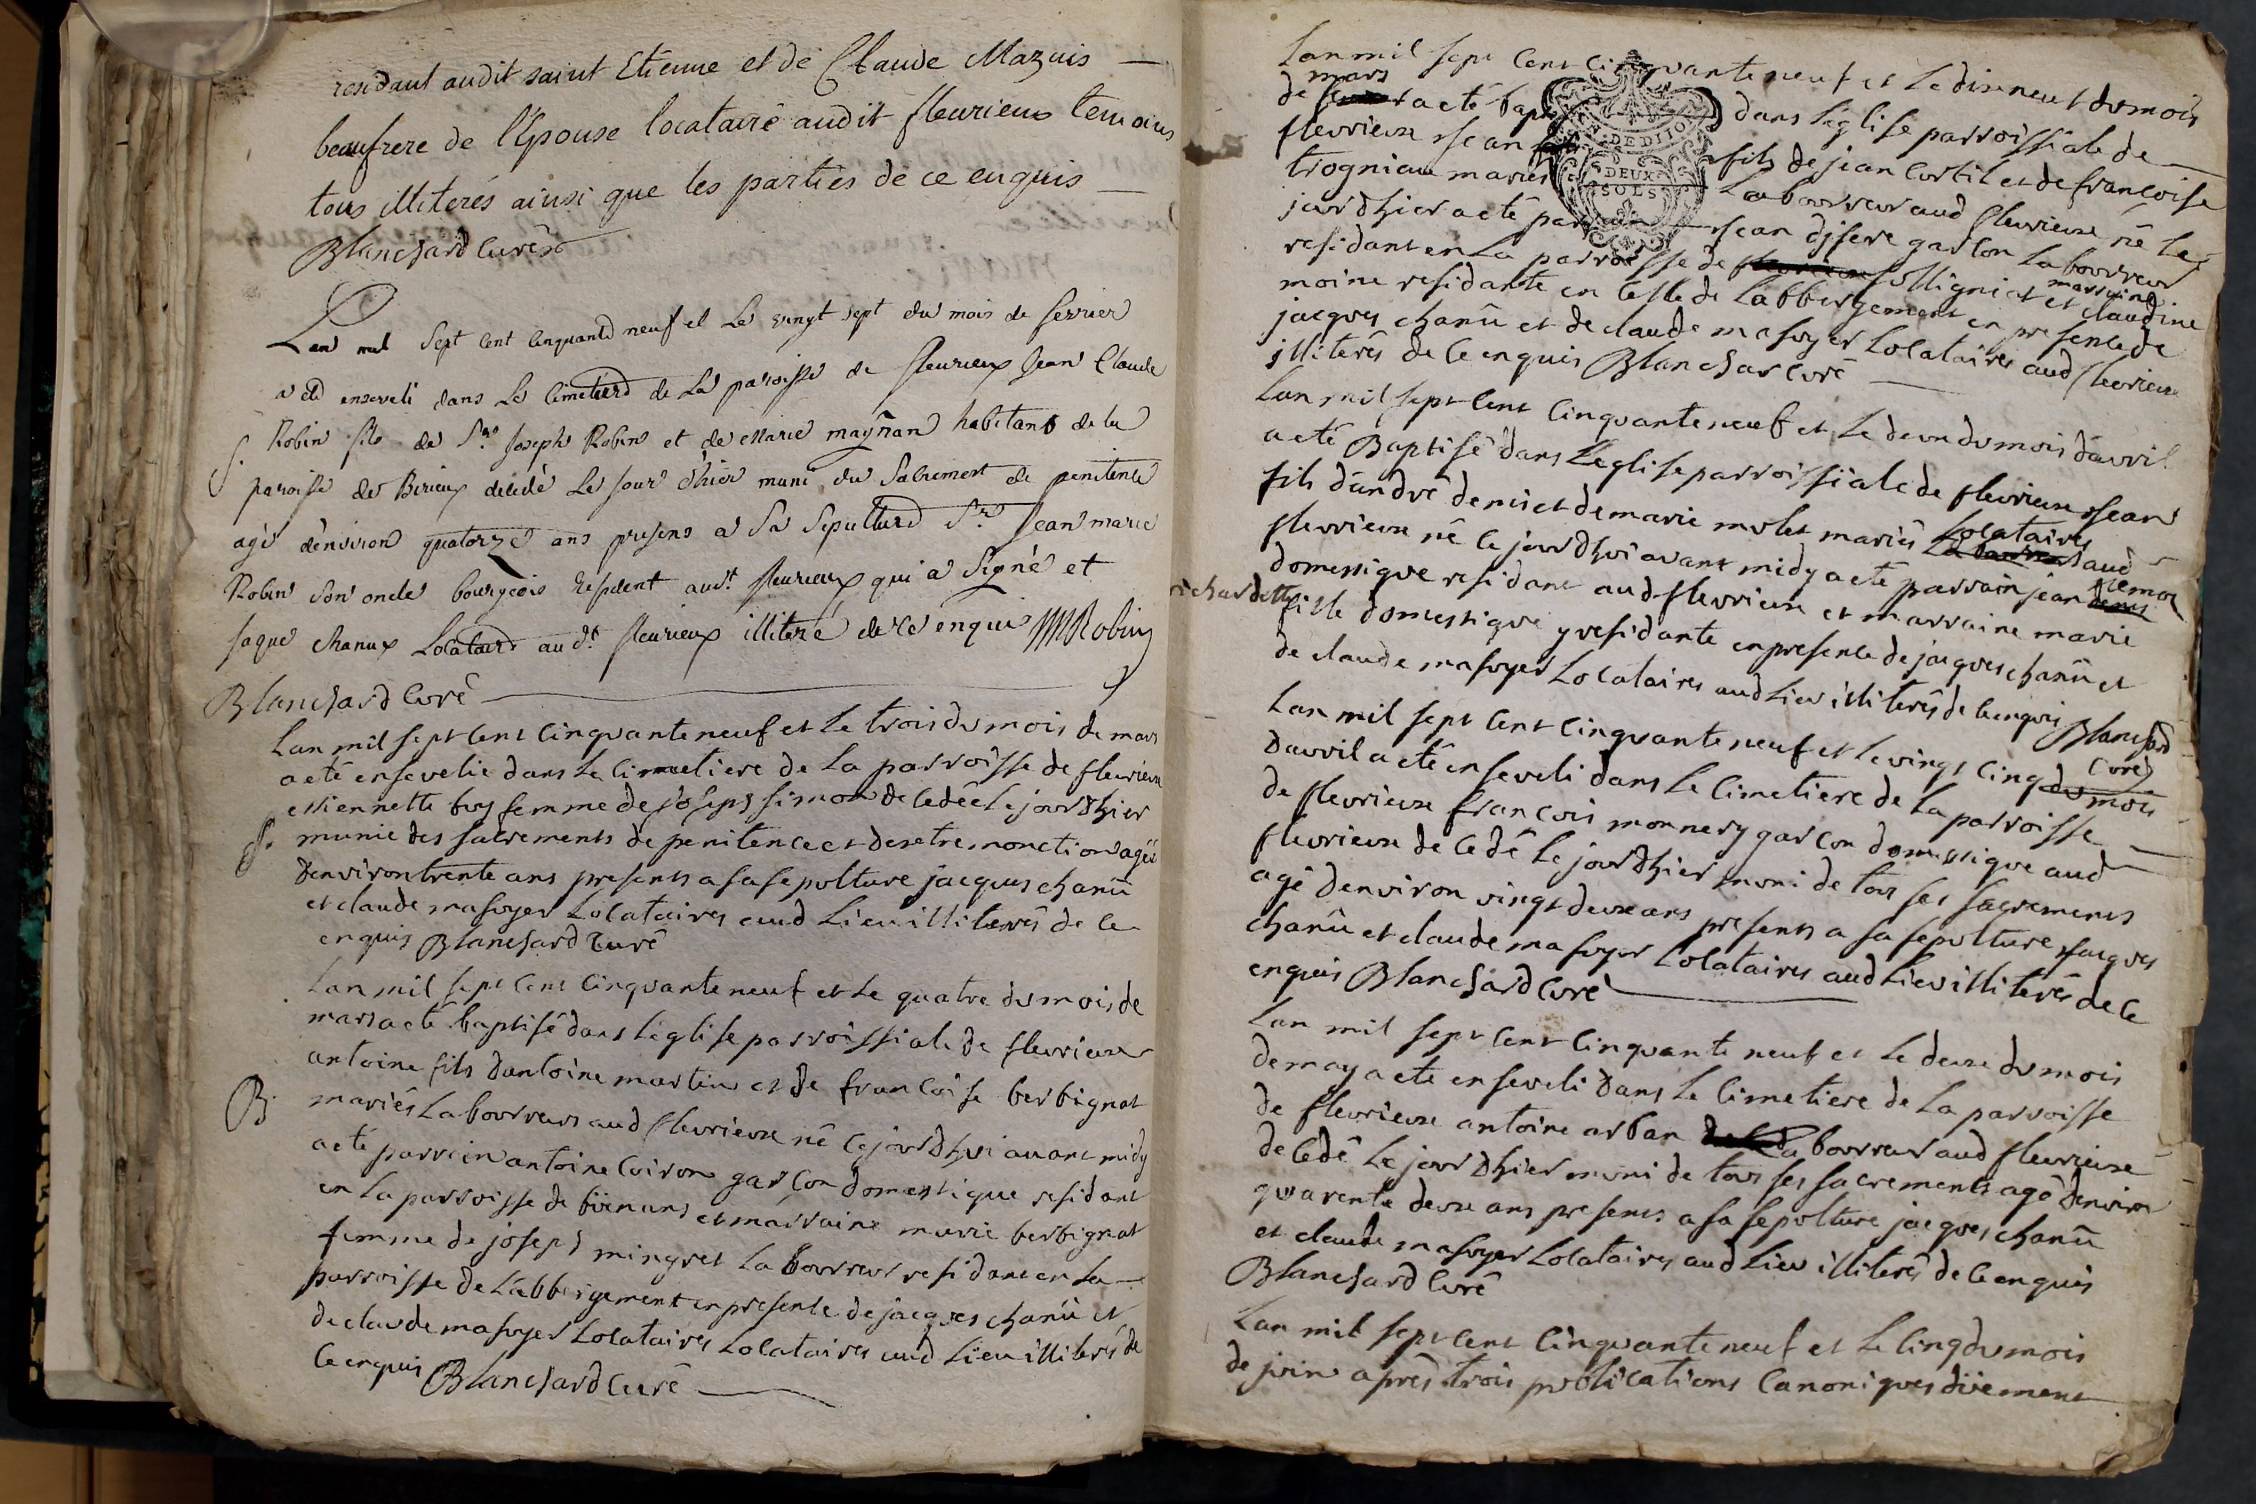 residant audit saint Etienne et de Claude Mazuis
beaufrere de l'Epouse locataire audit fleurieux temoins
tous illiterés ainsi que les parties de ce enquis
Blanchard Curé
Lan mil Sept Cent Cinquante neuf et Le vingt sept du mois de fevrier
a eté enseveli dans Le Cimetierd de La paroisse de fleurieux Jean Claude
Robin fils de Sr. Joseph Robin et de Marie magnan habitans de la
S.
paroisse de Birieux decedé Le jour d'hier muni du Sacrement de penitence
agé d'environ quatorze ans presens a Sa Sepulture Sr. Jean marie
Robin son oncle bourgeois resident audt. fleurieux qui a Signé et
jaque chanux Locataire audt. fleurieux illiteré de ce enquis JMRobin
Blanchard Curé
Lan mil sept cent cinquante neuf et le trois du mois de mars
a eté ensevelie dans le cimetiere de la parroisse de fleurieux
estiennette buy femme de joseph simon decedée le jour dhier
S.
munie des sacrements de penitence et dextreme onction agée
denviron trente ans presents a sa sepolture jacques chanû
et claude masoyer locataires aud lieu illiterés de ce
enquis Blanchard Curé
Lan mil sept cent cinquante neuf et le quatre du mois de
mars a eté baptisé dans leglise parroissiale de fleurieux
antoine fils dantoine martin et de francoise berbignat
B.
mariés labourreurs aud fleurieux né ce jour dhui avant midy
a eté parrain antoine Coiron garcon domestique residant
en la parroisse de et marraine marie berbignat
femme de joseph mingret labourreur residant en la
parroisse de Labbergement en presence de jacques chanû et
de claude masoyer locataires locataires aud lieu illiterés de
ce enquis Blanchard Curé
Lan mil sept cent cinquante neuf et le dixneuf du mois
mars
de a eté bapt dans leglise parroissiale de
fleurieux jean fils de jean Cortil et de francoise
trogniau mariés labourreur aud fleurieux né le
jour dhier a eté parrain jean garcon labourreur
residant en la parroisse de solligniat et claudine
marraine
moine residante en celle de Labbergement en presence de
jacques chanû et de claude masoyer locataires aud fleurieux
illiterés de ce enquis Blanchar Curé
Lan mil sept cent cinquante neuf et le deux du mois dauvril
a eté Baptisé dans leglise parroissiale de fleurieux jean
fils dandré denis et de marie molet mariés locataires aud
fleurieux né ce jour dhui avant midy a eté parrain jean
domestique residant aud fleurieux et marraine marie
richardet fille domestique y residante en presence de jacques chanû et
de claude masoyer locataires aud lieu illiterés de ce enquis Blanchard
Curé
Lan mil sept cent cinquante neuf et le vingt cinq du mois
dauvril a eté enseveli dans le cimetiere de la parroisse
de fleurieux francois monnery garcon domestique aud
fleurieux decedé le jour dhier muni de tous ses sacrements
agé denviron vingt deux ans presents a sa sepolture jacques
chanû et claude masoyer locataires aud lieu illiterés de ce
enquis Blanchard Curé
Lan mil sept cent cinquante neuf et le deux du mois
de may a eté enseveli dans le cimetiere de la parroisse
de fleurieux antoine arban labourreur aud fleurieux
decedé le jour dhier muni de tous ses sacrements agé denviron
quarente deux ans presents a sa sepolture jacques chanû
et claude masoyer locataires aud lieu illiterés de ce enquis
Blanchard Curé
Lan mil sept cent cinquante neuf et le cinq du mois
de juin aprés trois publications canoniques düement
DE DIJON
DEUX
SOLS